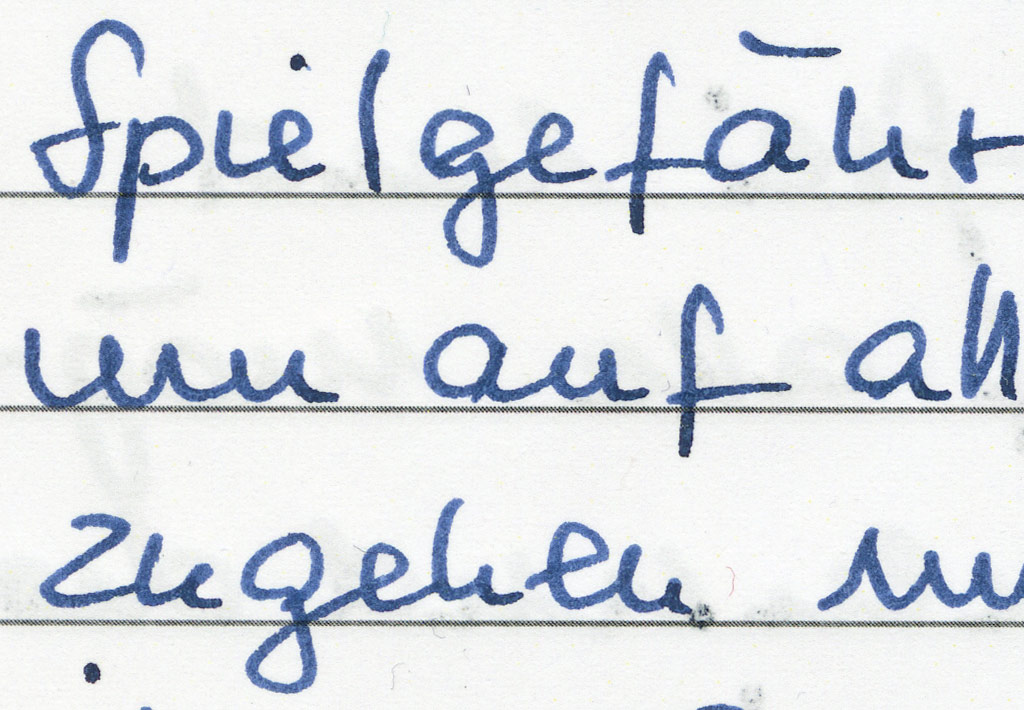 Spielgefähr
um auf all
zugehen